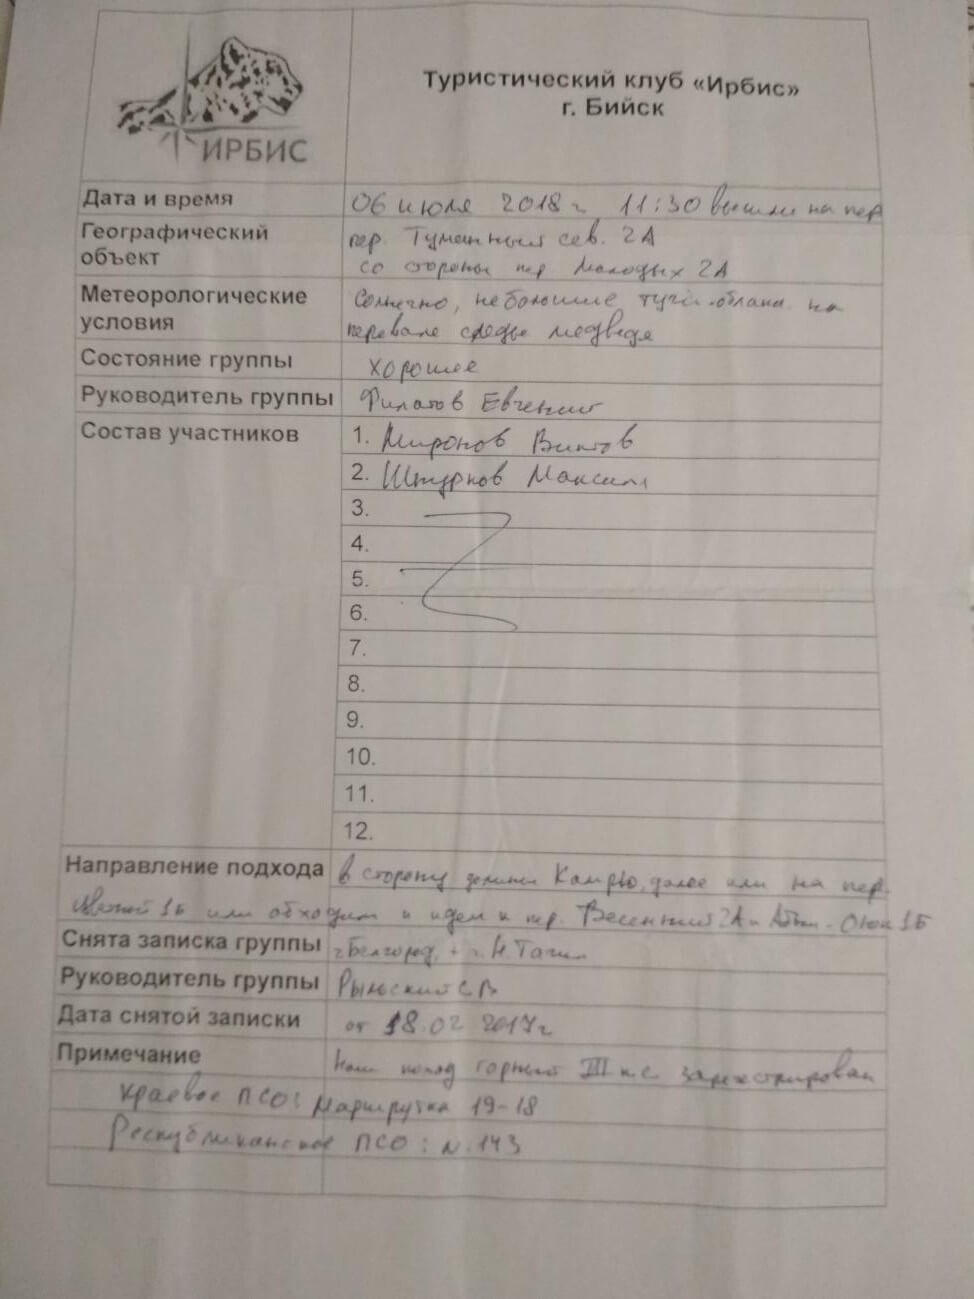 ИРБИС
Туристический клуб «Ирбис»
г. Бийск
Дата и время 06 июля 2018 г 11:30 вышли на пер
Географический объект
пер. Туманный сев. 2А
со стороны пер Молодых 2А
Метеорологические условия
Солнечно, небольшие тучи-облака на
перевале следы медведя
Состояние группы хорошее
Руководитель группы Филатов Евгений
Состав участников
1. Миронов Виктор
2. Штурнов Максим
3.
4.
5.
6.
7.
8.
9.
10.
11.
12.
Направление подхода в сторону долины Камрю, далее или на пер.
1Б или обходим и идем к пер. Весенний 2А и 1Б
Снята записка группы г. Белгород, + г. Н. Тагил
Руководитель группы Рыльский С В
Дата снятой записки от 18.02 2017г
Примечание Наш поход горный III к.с. зарегистрирован
краевое ПСО: Маршрутка 19-18
Республиканское ПСО: N. 143